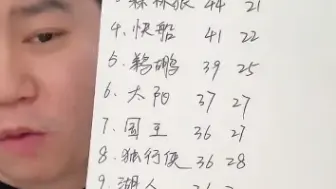 森林狼 44 21
4、快船 41 22
5、鹈鹕 39 25
6、太阳 37 27
7、国王 36 27
8、独行侠 36 28
9、湖人